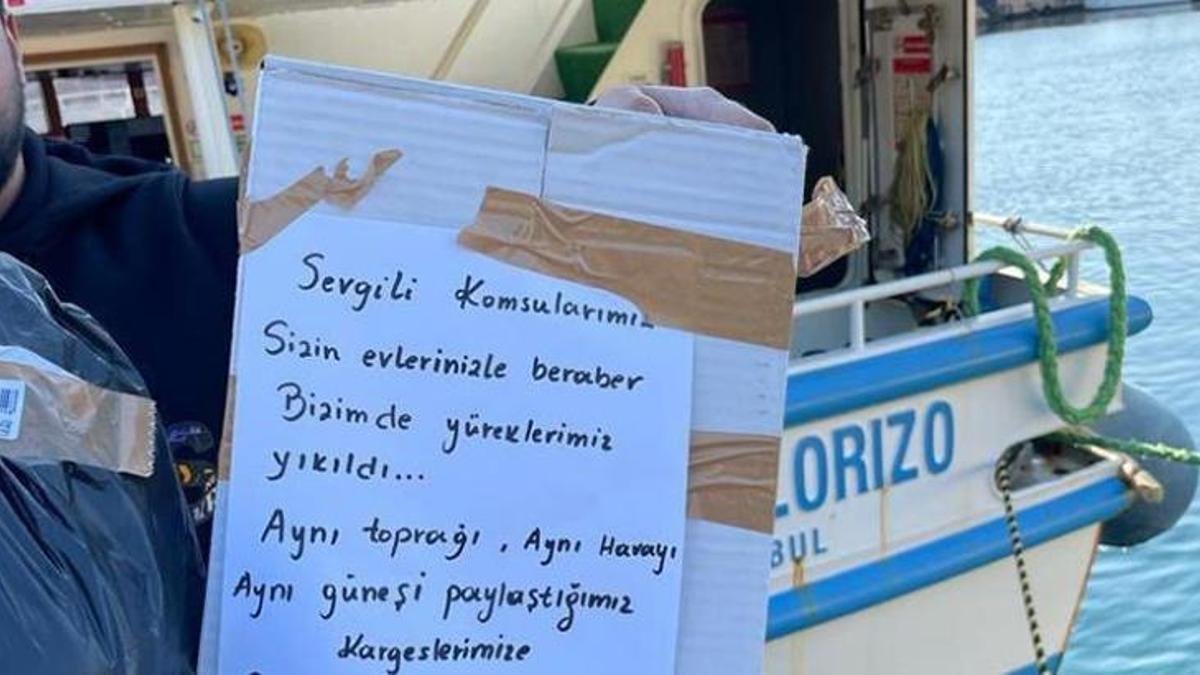 Sevgili Komsularımız
Sizin evlerinizle beraber
Bizimde yüreklerimiz
yıkıldı...
Aynı toprağı, Aynı Havayı
Aynı güneşi paylaştığımız
Kargeslerimize
LORIZO
BUL